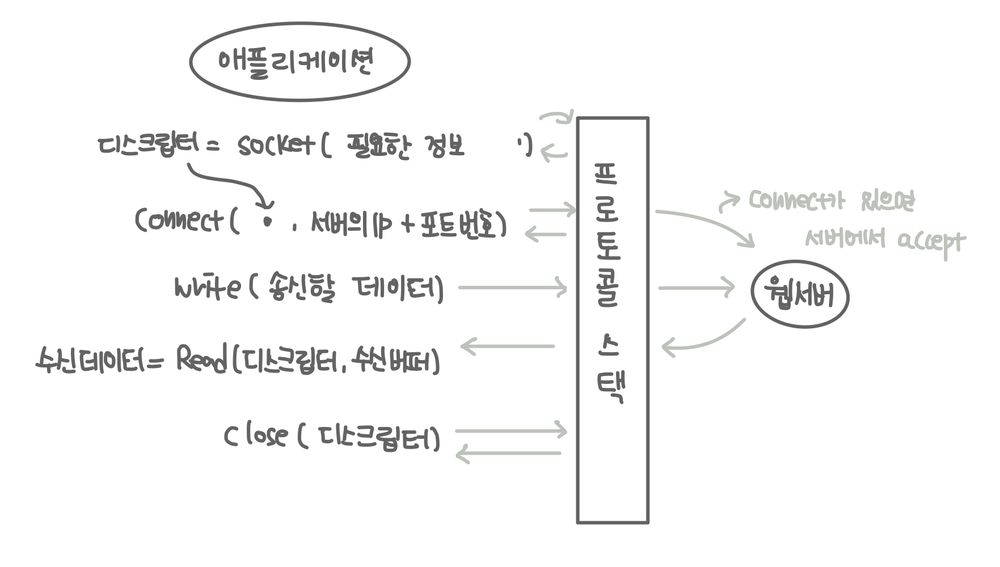 애플리케이션
디스크립터 = socket( 필요한 정보 ··)
Connect( • , 서버의 IP + 포트번호)
Write( 송신할 데이터)
수신데이터 = Read(디스크립터, 수신버퍼)
Close( 디스크립터)
프로토콜 스택
Connect가 있으면
서버에서 accept
웹서버